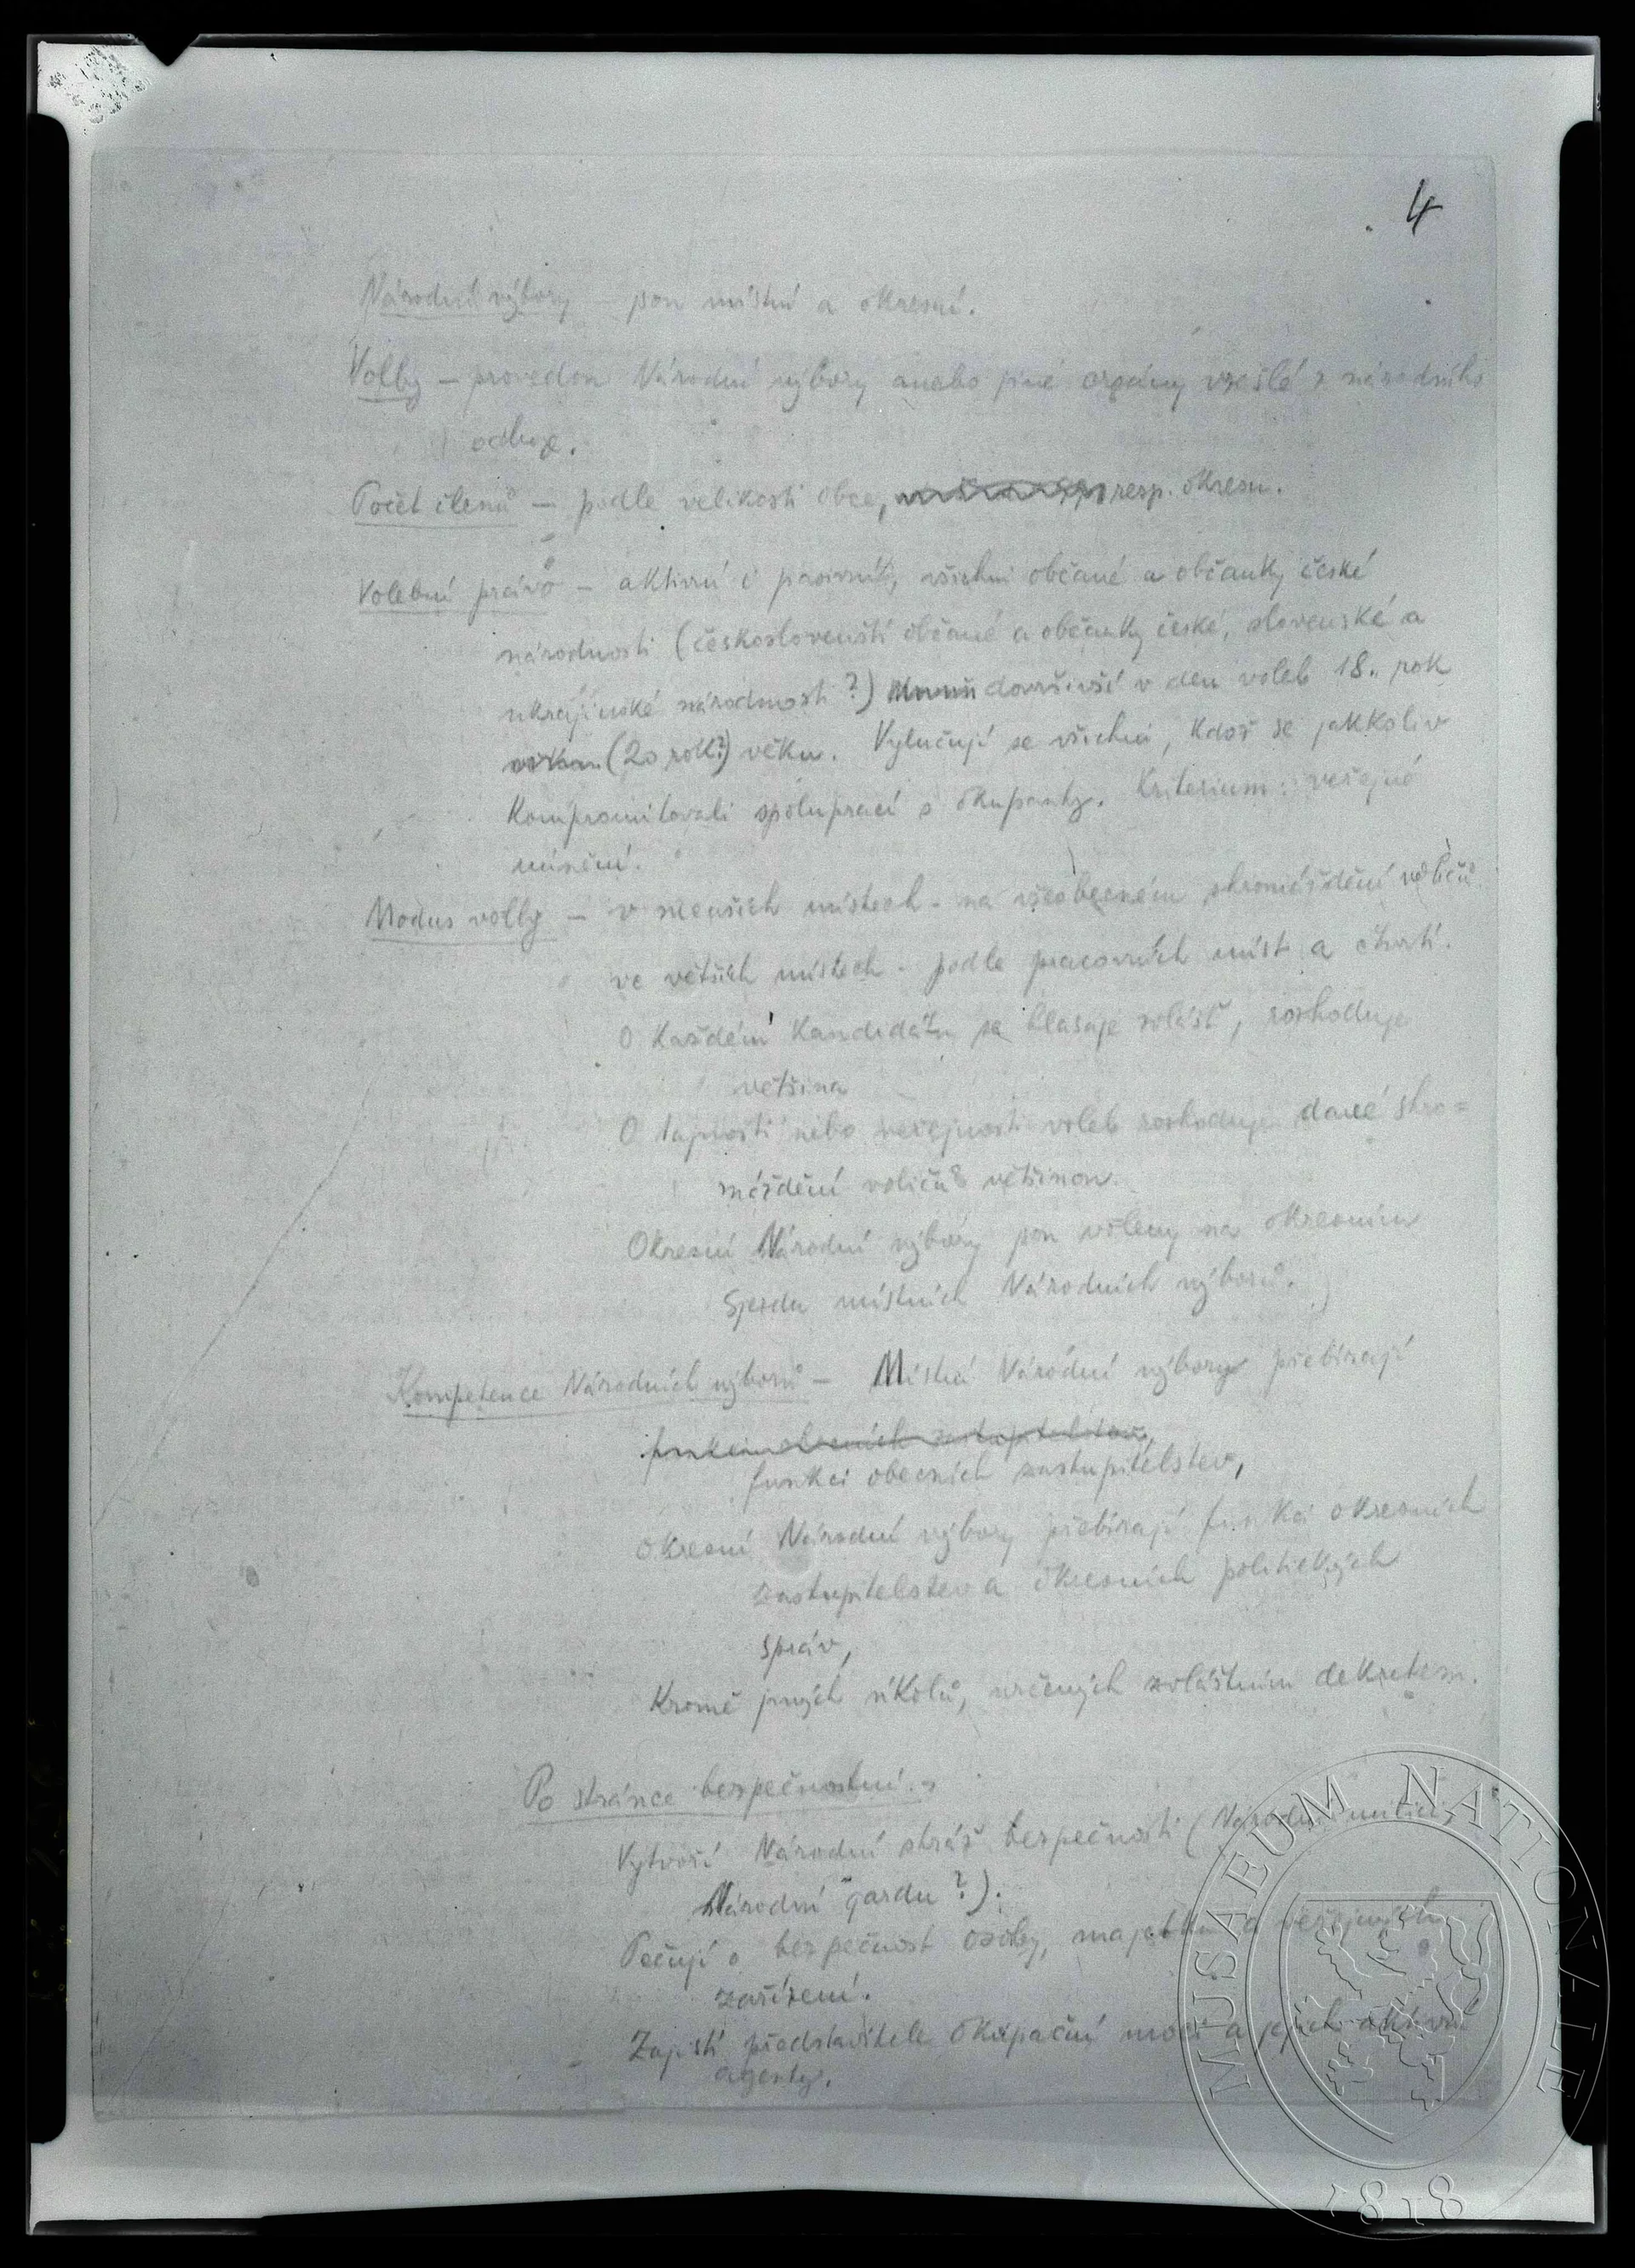 4
Národní výbory – jsou místní a okresní.
Volby – provedou Národní výbory anebo jiné orgány vzešlé z národního
odboje.
Počet členů – podle velikosti obce, resp. okresu.
Volební právo – aktivní i pasivní, všichni občané a občanky české
národnosti (českoslovenští občané a občanky české, slovenské a
ukrajinské národnosti?) dovršivší v den voleb 18. rok
(20 rok?) věku. Vylučují se všichni, kdož se jakkoliv
kompromitovali spoluprací s okupanty. Kriterium: veřejné
mínění.
Modus volby – v menších místech - na všeobecném shromáždění voličů
ve větších místech - podle pracovních míst a čtvrtí.
O každém kandidátu se hlasuje zvlášť, rozhoduje
většina
O tajnosti nebo veřejnosti voleb rozhoduje dané shro=
máždění voličů většinou.
Okresní Národní výbory jsou voleny na okresním
sjezdu místních Národních výborů.
Kompetence Národních výborů – Místní Národní výbory přebírají
funkci obecních zastupitelstev,
funkci obecních zastupitelstev,
okresní Národní výbory přebírají funkci okresních
zastupitelstev a okresních politických
správ,
kromě jiných úkolů, určených zvláštním dekretem.
Po stránce bezpečnostní:
Vytvoří Národní stráž bezpečnosti (Národní milici,
Národní gardu?).
Pečují o bezpečnost osoby, majetku a veřejných
zařízení.
Zajistí představitele okupační moci a jejich aktivní
agenty.
MUSAEUM NATIONALE
1818